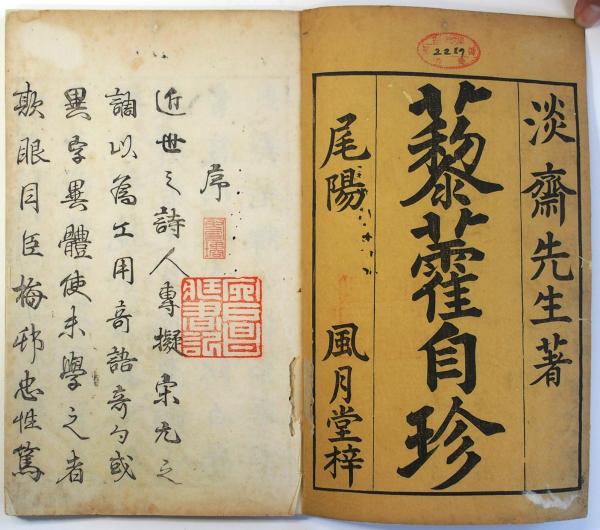 2289
淡齋先生著
藜藿自珍
尾陽 風月堂梓
序
近世之詩人專擬宋元之
調以爲工用奇語奇句或
異字異體使末學之者
欺眼目臣梅邨忠性篤